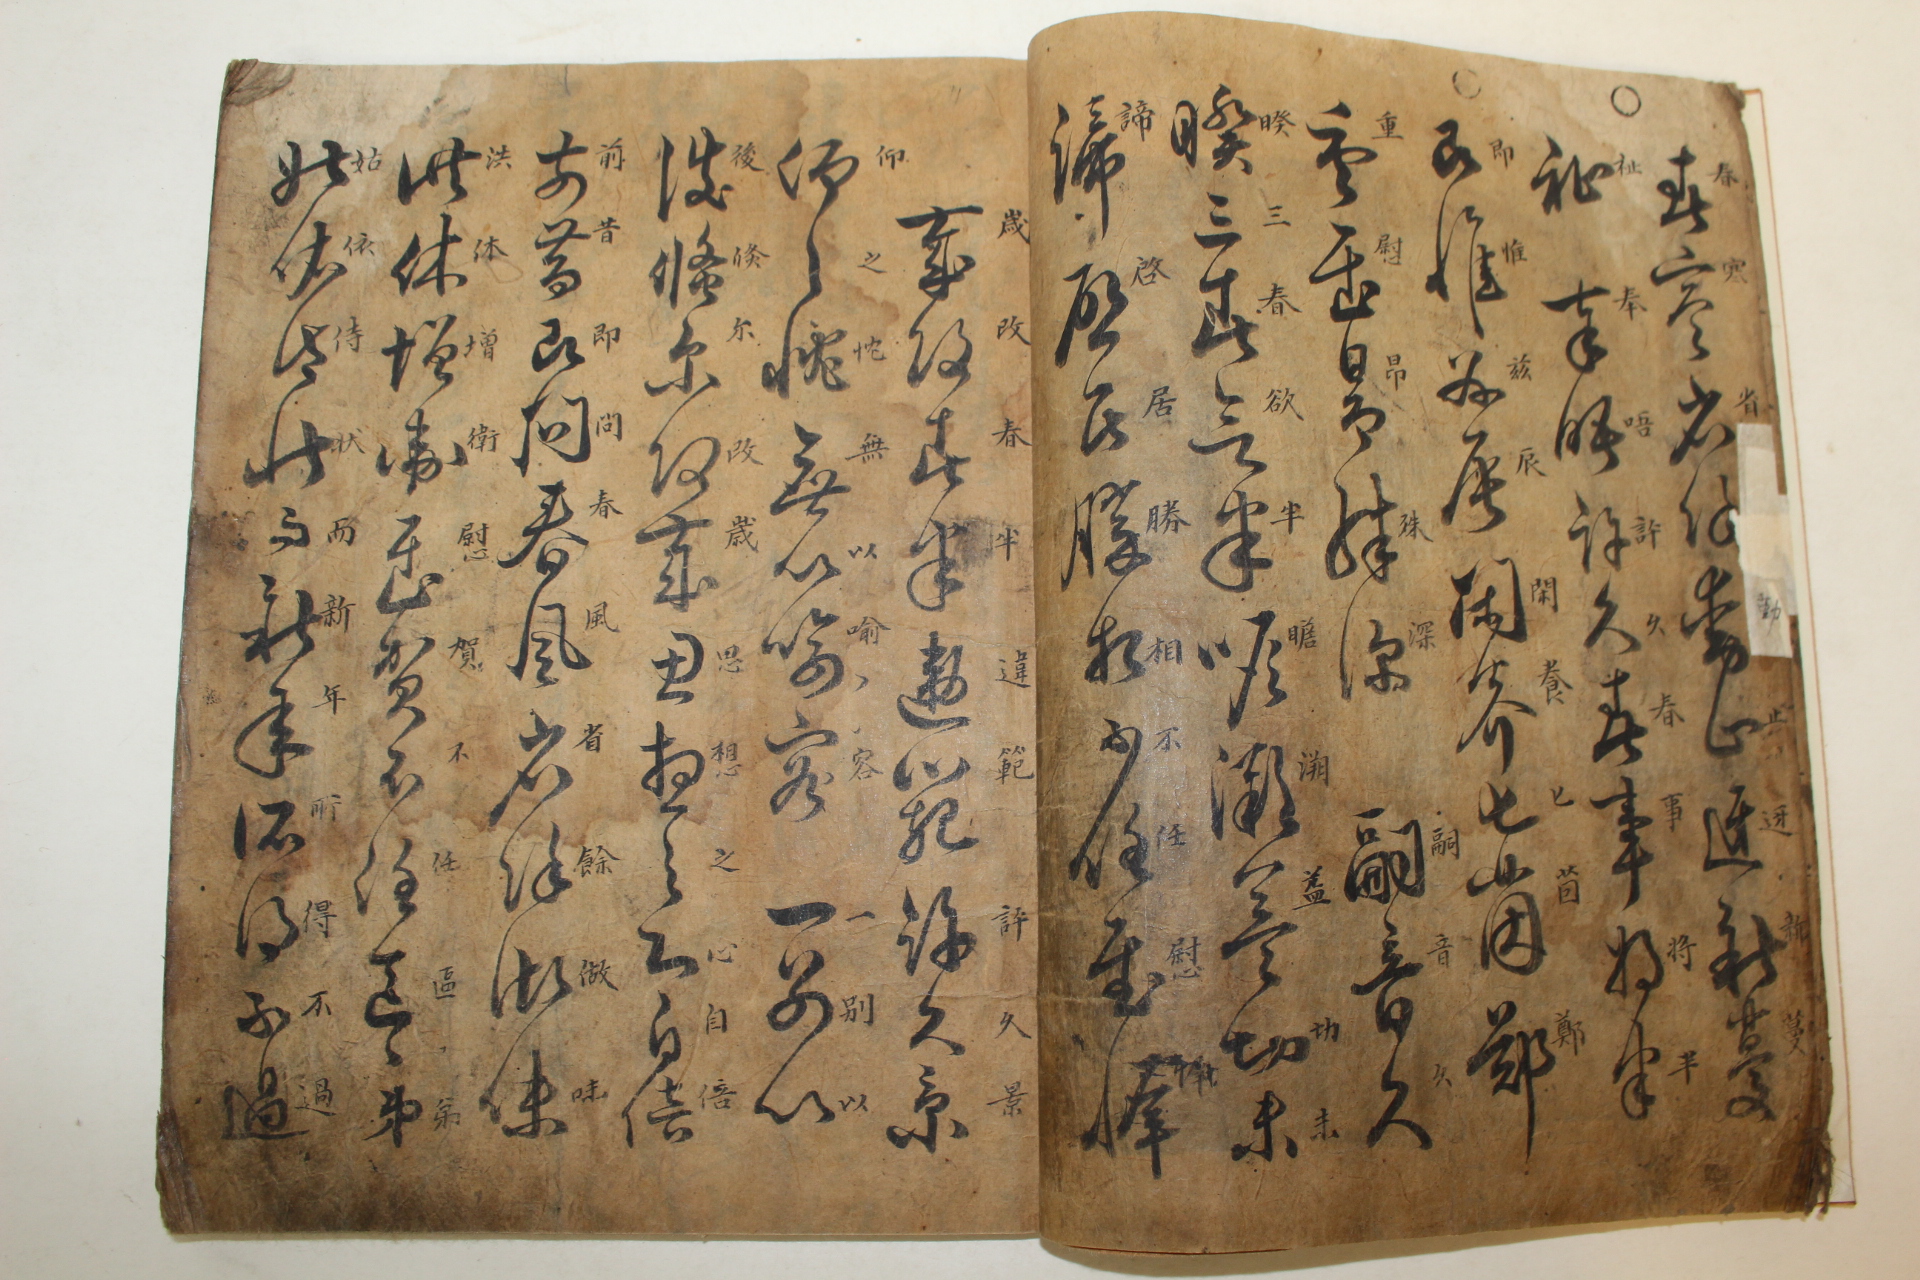 春寒省餘勤止迓新蔓
祉奉晤許久春事將半
即惟玆辰閑養匕茵鄭
重慰昂殊深嗣音久
睽三春欲半瞻溯盖切未
諦啓居勝相不任慰
歲改春半違範許久景
仰之忱無以喻容一別以
後倏尔改歲思想之心自倍
前昔即問春風省餘做味
洪体增衛慰賀不任區〻弟
姑依侍狀而新年所得不過